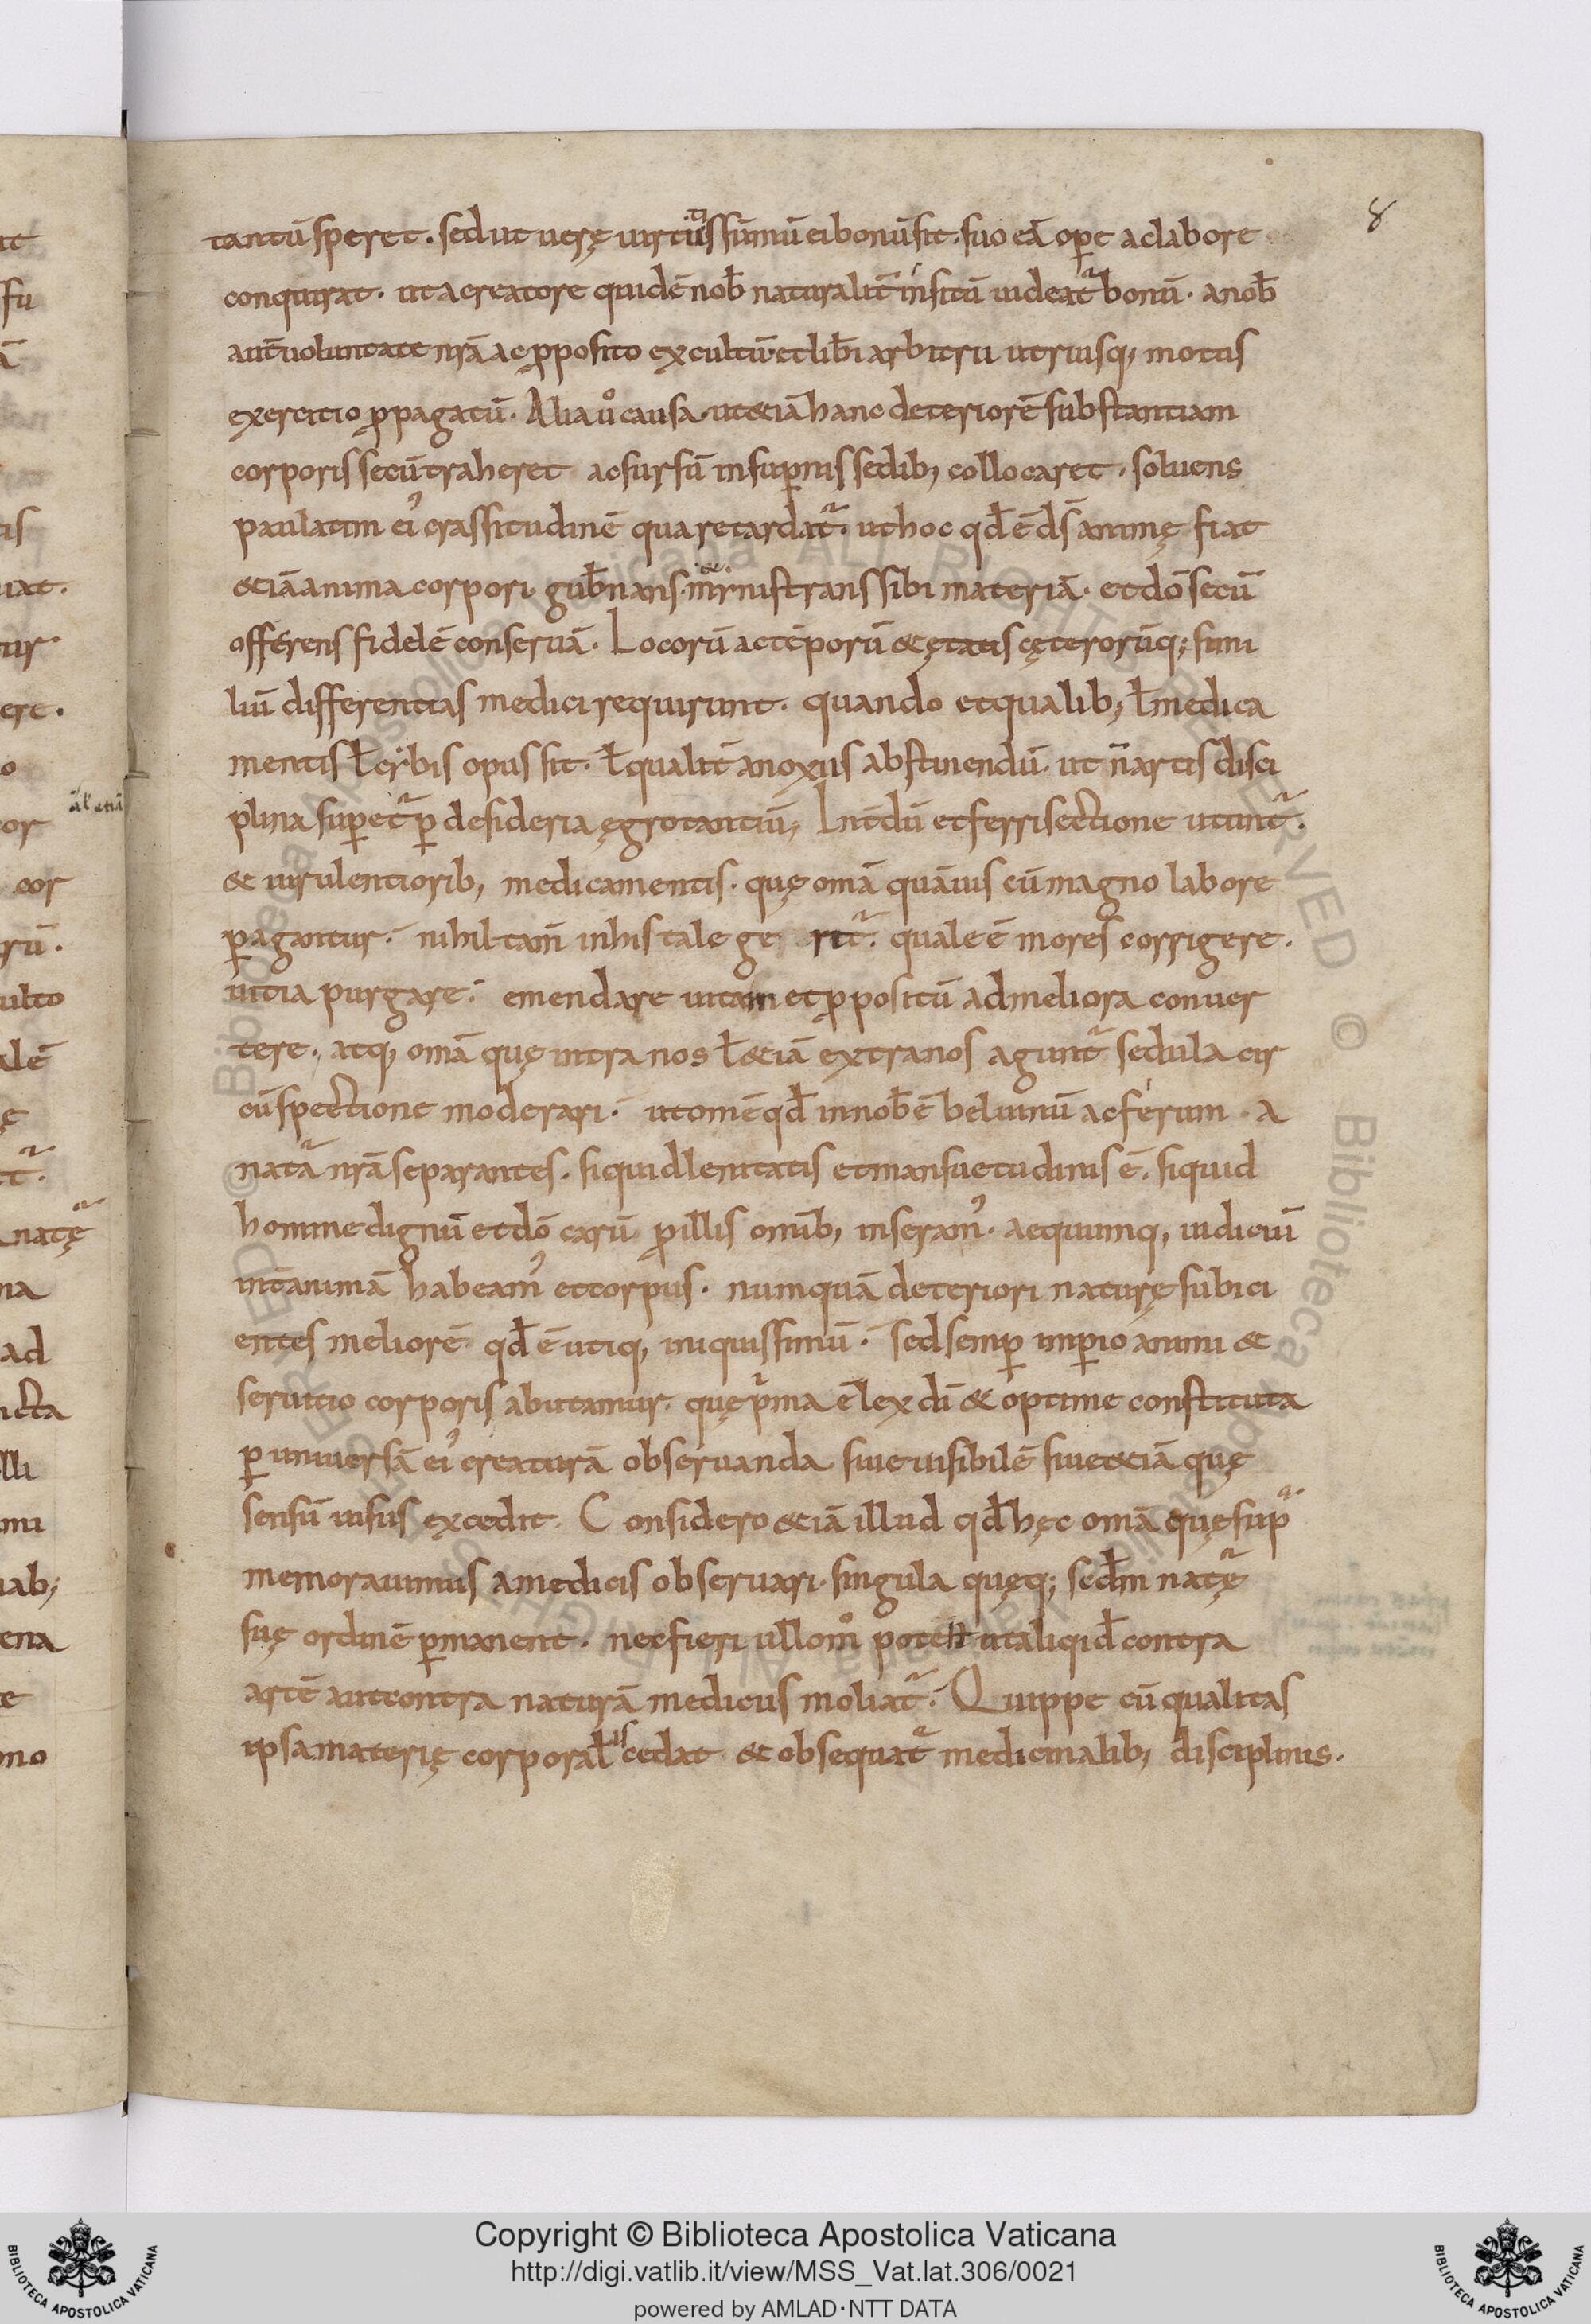 8
tantū speret. sed ut uerę uirtus sūmū ei bonū sit. suo eā ope ac labore
conquirat. ut a creatore quidē nob̄ naturalit̄ insitū uideat̄ bonū. a nob̄
aut̄ uoluntate nr̄a ac pposito excultū. et lib̄i arbitrii utriusq; motus
exercitio ppagatū. Alia ů causa. ut &iā hanc deteriorē substantiam
corporis secū traheret ac sursū in supnis sedib; collocaret. soluens
paulatim ei' crassitudinē qua retardat̄. ut hoc qd̄ ē ds̄ animę fiat
&iā anima corpori gub̄nans. ministrans sibi materiā. et dō secū
offerens fidelē conseruā. Locorū ac tēporū & ętatis cęterorūq; simi
liū differentias medici requirunt. quando et qualib; ł medica
mentis ł erbis opus sit. ł qualit̄ a noxiis abstinendū. ut n̄ artis disci
plina supet̄ p desideria ęgrotantiū; Int̄dū et ferri sectione utunt̄.
& uirulentiorib; medicamentis. quę om̄a quāuis cū magno labore
pagantur. nihil tam̄ in his tale ge rit̄. quale ē mores corrigere.
uitia purgare. emendare uitam et ppositū ad meliora conuer
tere. atq; om̄a quę intra nos ł &iā extra nos agunt̄ sedula cir
cūspectione moderari. ut om̄e qd̄ in nob̄ ē beluinū ac ferum. a
natā nr̄a separantes. si quid lenitatis et mansuetudinis ē. si quid
homine dignū et dō carū p illis omib; inseram'. aequumq; iudiciū
int̄ animā habeam' et corpus. numquā deteriori naturę subici
entes meliorē qd̄ ē utiq; iniquissimū. Sed semp impio animi &
seruitio corporis abutamur. quę pma ē lex dī & optime constituta
p uniuersā ei' creaturā obseruanda siue uisibilē siue &iā quę
sensū uisus excedit. Considero &iā illud qd̄ hęc om̄a quę sup
memorauimus a medicis obseruari. singula quęq; scd̄m natę
suę ordinē pmanent. nec fieri ullom̊ potest ut aliqid̄ contra
artē aut contra naturā medicus moliat̄. Quippe cū qualitas
ipsa materię corporał is cedat & obsequat̄ medicinalib; disciplinis.
Copyright © Biblioteca Apostolica Vaticana
http://digi.vatlib.it/view/MSS_Vat.lat.306/0021
powered by AMLAD·NTT DATA
BIBLIOTECA APOSTOLICA VATICANA
BIBLIOTECA APOSTOLICA VATICANA